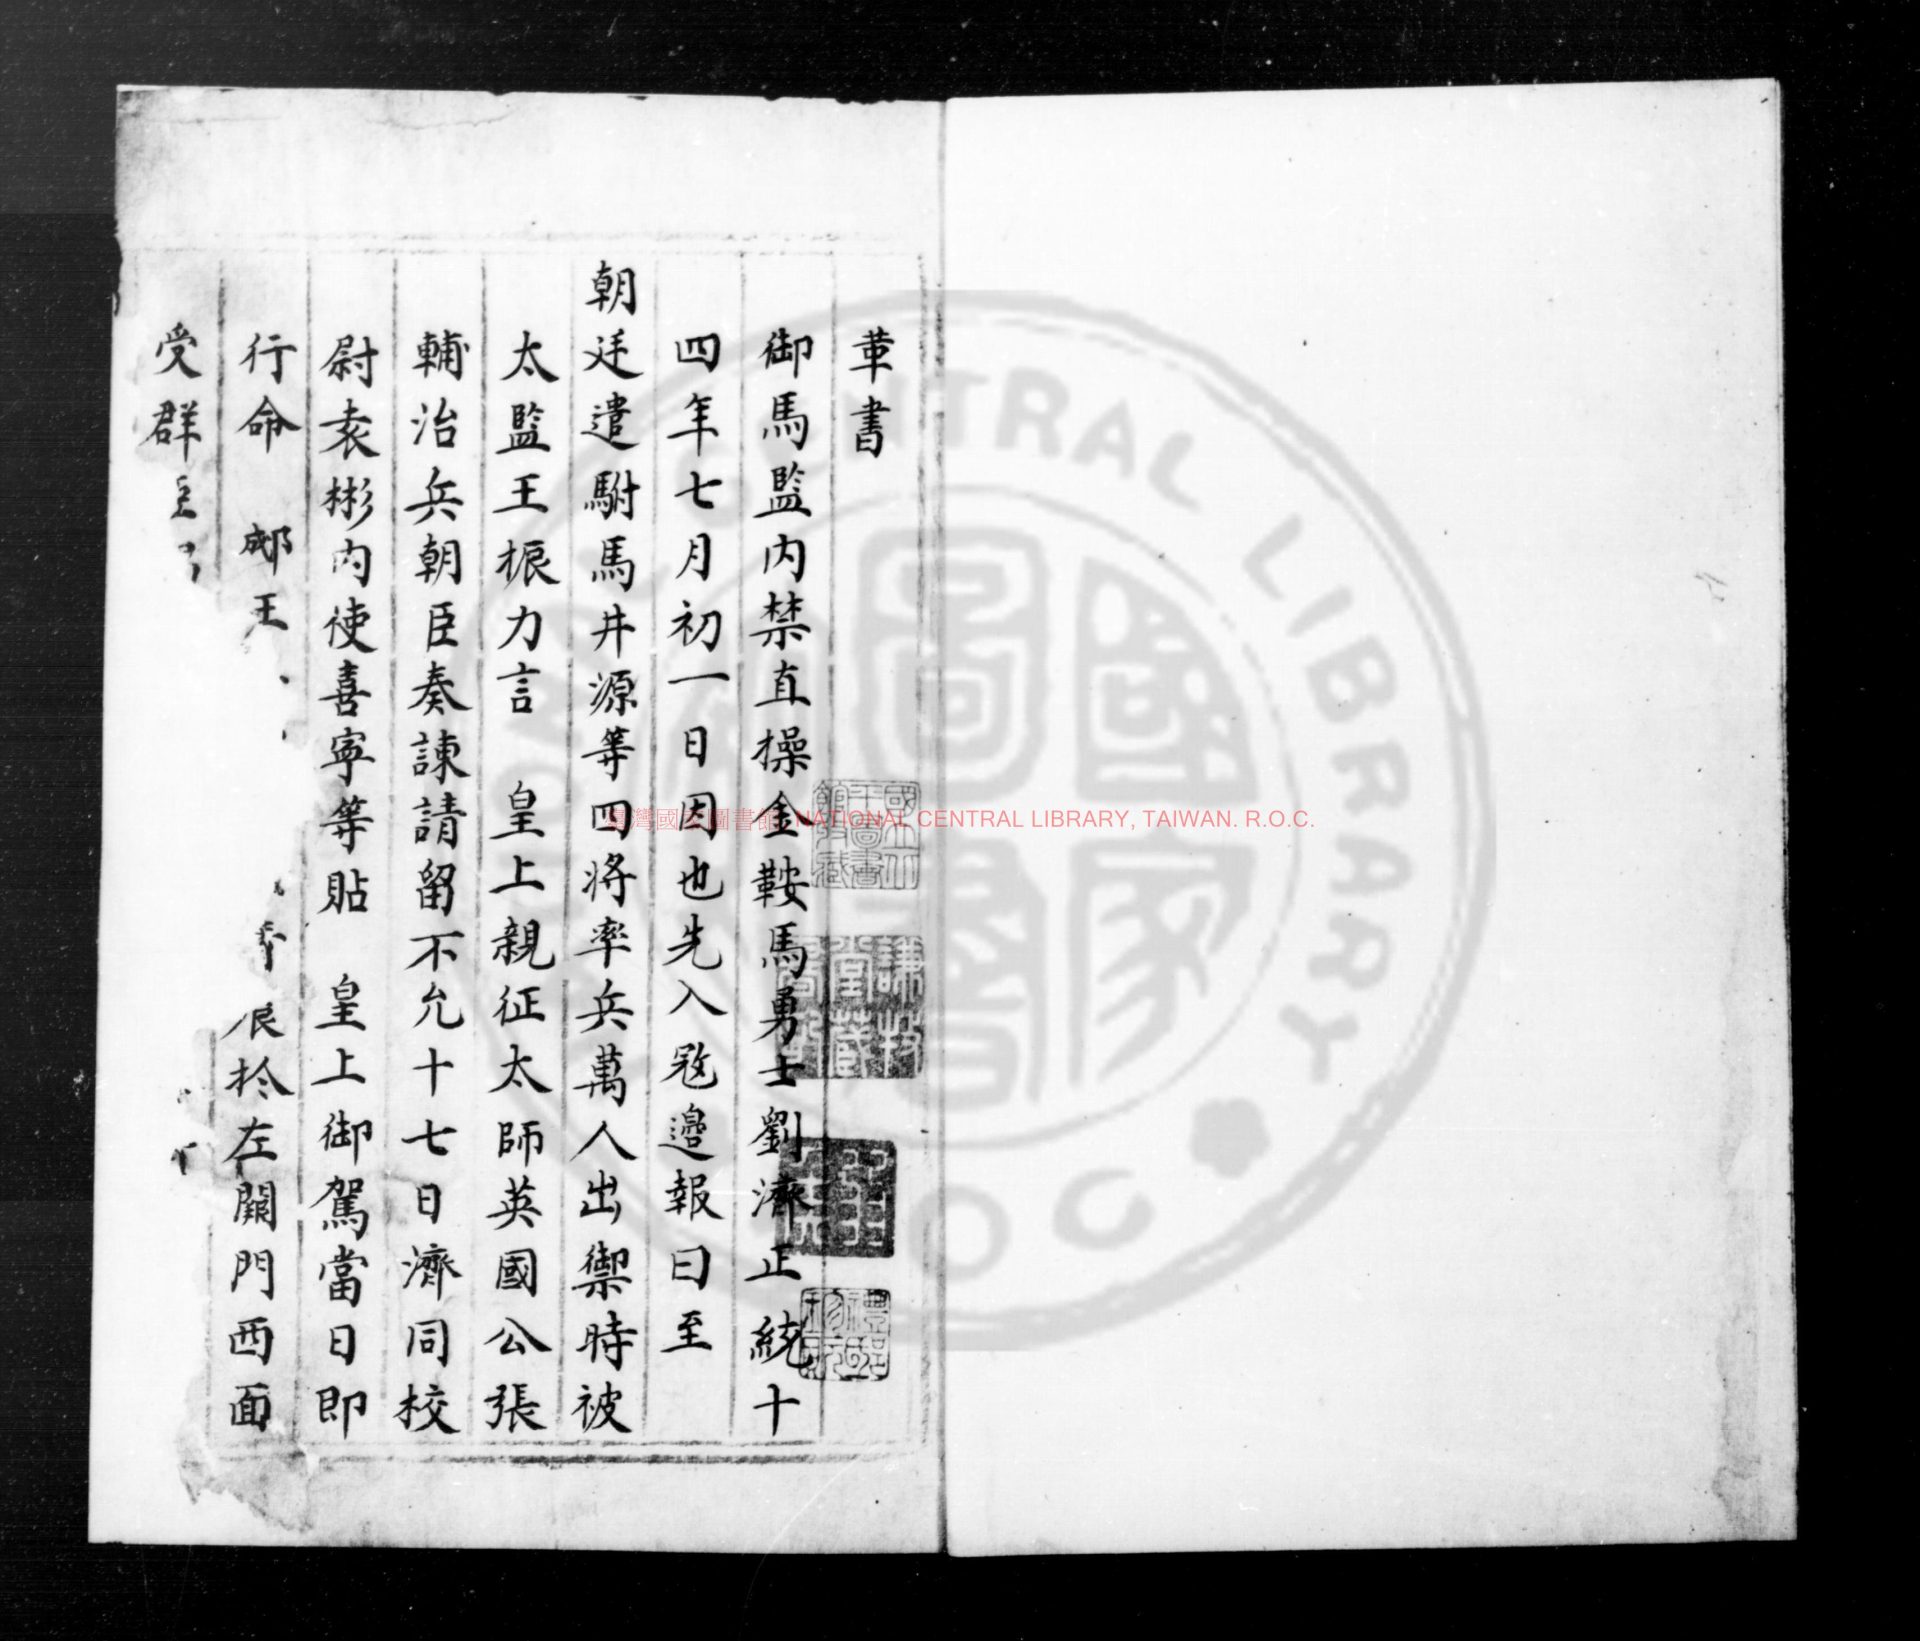 革書
御馬監内禁直操金鞍馬勇士劉濟正統十
四年七月初一日因也先入宼邉報曰至
朝廷遣駙馬井源等四将率兵萬人出禦時被
太監王振力言 皇上親征太師英國公張
輔治兵朝臣奏諌請留不允十七日濟同校
尉袁彬内使喜寜等貼 皇上御駕當日即
行命 郕王 扵左闕門西面
受群
謙牧堂藏書記
臺灣國家圖書館 NATIONAL CENTRAL LIBRARY, TAIWAN. R.O.C.
CENTRAL LIBRARY
國家圖書